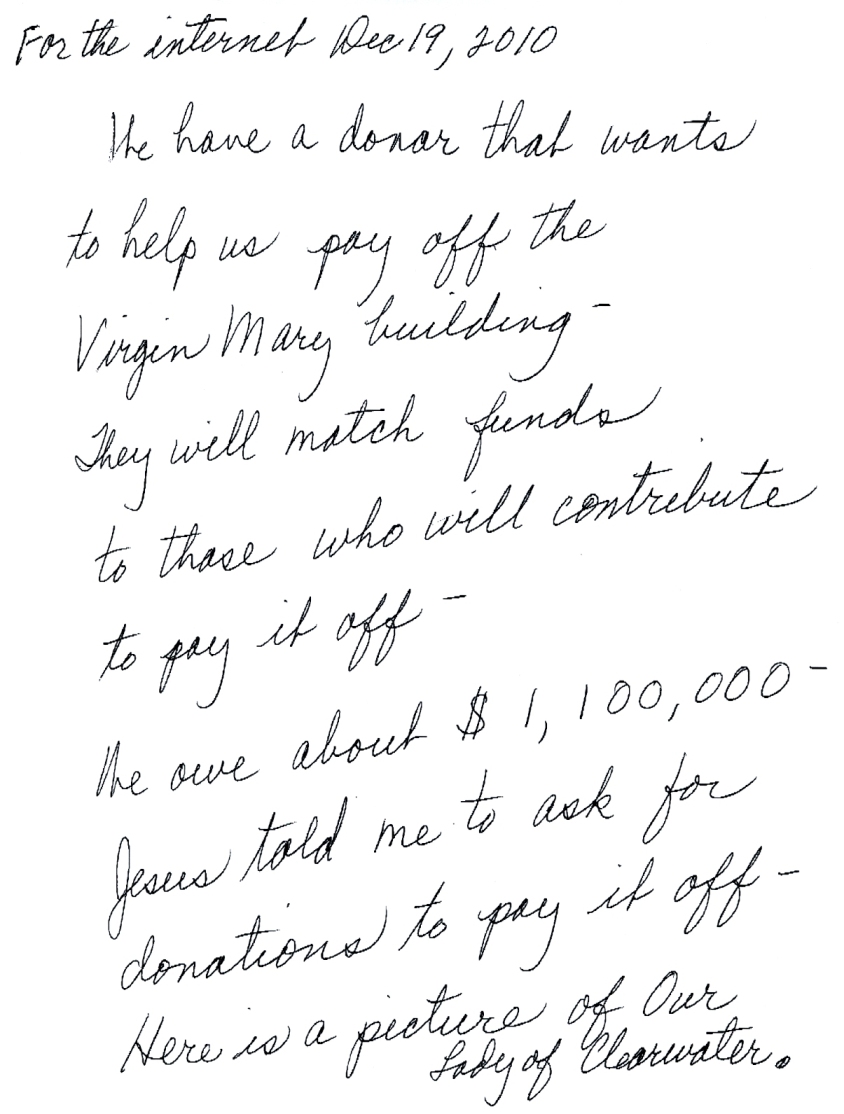 For the internet Dec 19, 2010
We have a donar that wants
to help us pay off the
Virgin Mary building -
They will match funds
to those who will contribute
to pay it off -
We owe about $ 1,100,000 -
Jesus told me to ask for
donations to pay it off -
Here is a picture of Our
Lady of Clearwater.